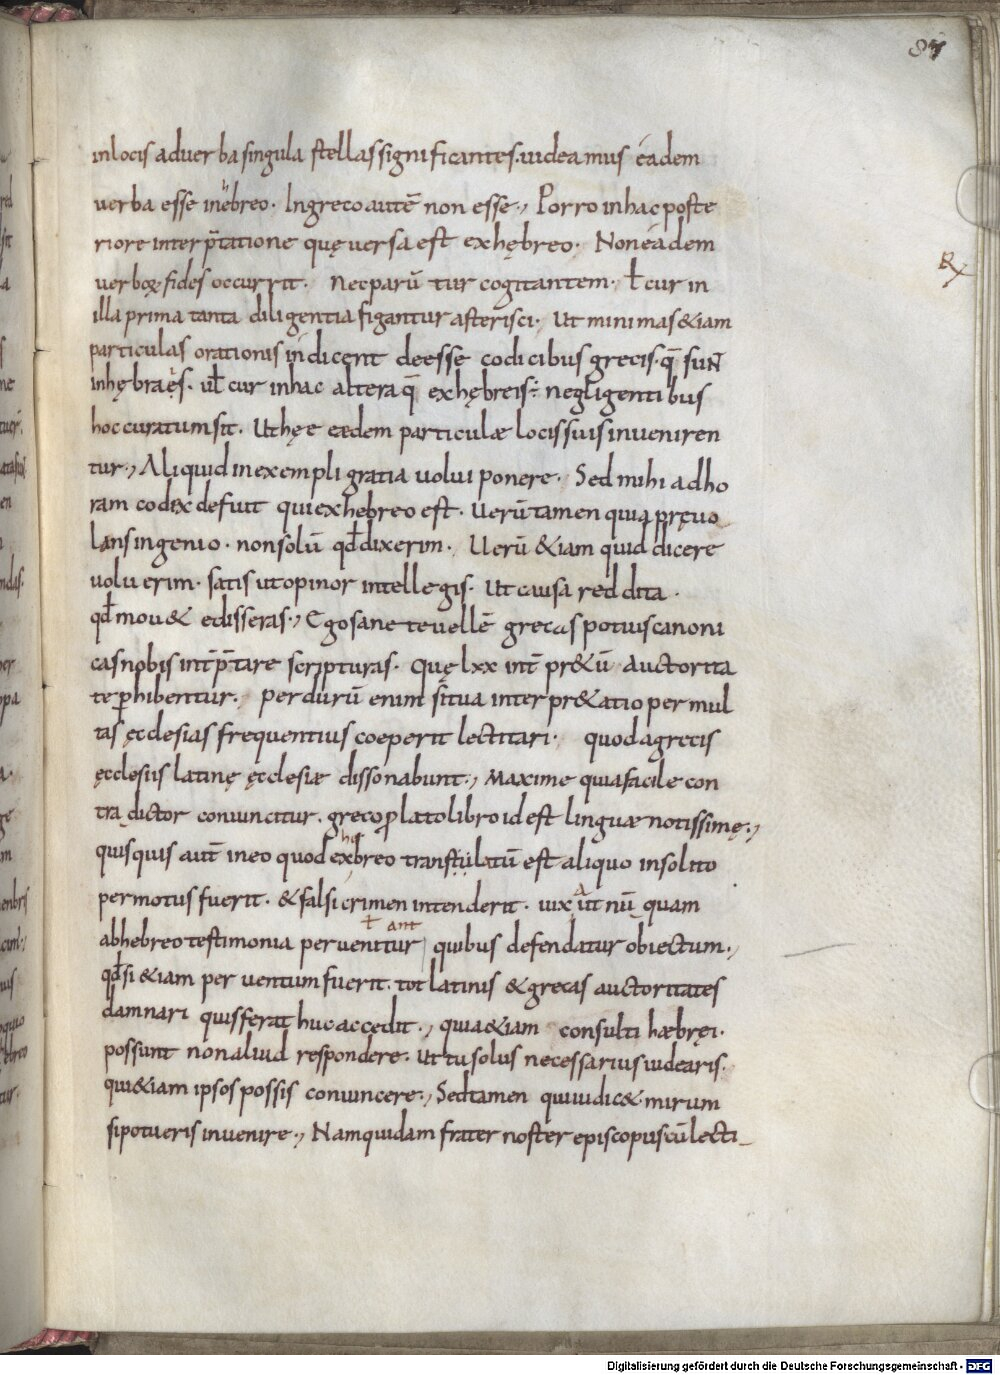 87
inlocis aduerba singula stellas significantes. uideamus éadem
uerba esse inebreo. Ingreco autē non esse., Porro in hac poste
riore interp̄tatione quę uersa est ex hębreo. Non éadem
uerboꝝ fides occurrit. Nec parū tur cogitantem. ł cur in
illa prima tanta diligentia figantur asterisci. Ut minimas &iam
particulas orationis indicent deesse codicibus grecis. q̄ suN
inhębraęis. uł cur inhac altera q̄ exhębreis÷ negligentibus
hoc curatum sit. Ut hęe eædem particulæ locis suis inueniren
tur., Aliquid inexempli gratia uolui ponere. Sed mihi adho
ram codix defuit qui exhebreo est. Uerū tamen quia pręuo
lans ingenio. non solū qđ dixerim. Uerū &iam quid dicere
uoluerim. satis ut opinor intellegis. Ut causa reddita.
qđ mou& edisseras., Ego sane te uellē grecas potius canoni
cas nobis int̄p̄tare scripturas. Quę lxx int̄ pr&ū auctorita
te ꝑhibentur. perdurū enim si tua interpr&atio per mul
tas ęcclesias frequentius coeperit lectitari. quod agrecis
ęcclesiis latinę ęcclesiæ dissonabunt., Maxime quia facile con
tradictor conuincitur. greco ꝓlato libro id est linguæ notissimę.,
quisquis aut̄ in eo quod ex hębreo transtulatū est aliquo insolito
permotus fuerit. & falsi crimen intenderit. uix aut nū quam
ł ant
abhebreo testimonia peruenitur quibus defendatur obiectum.,
qđ si &iam peruentum fuerit. tot latinis & grecas auctoritates
damnari quis ferat huc accedit., quia &iam consulti hæbręi.
possunt non aliud respondere. Ut tu solus necessarius uidearis.
qui &iam ipsos possis conuincere., Sed tamen quiiudic& mirum
si potueris inuenire., Nam quidam frater noster episcopus cū lecti_
Digitalisierung gefördert durch die Deutsche Forschungsgemeinschaft - DFG